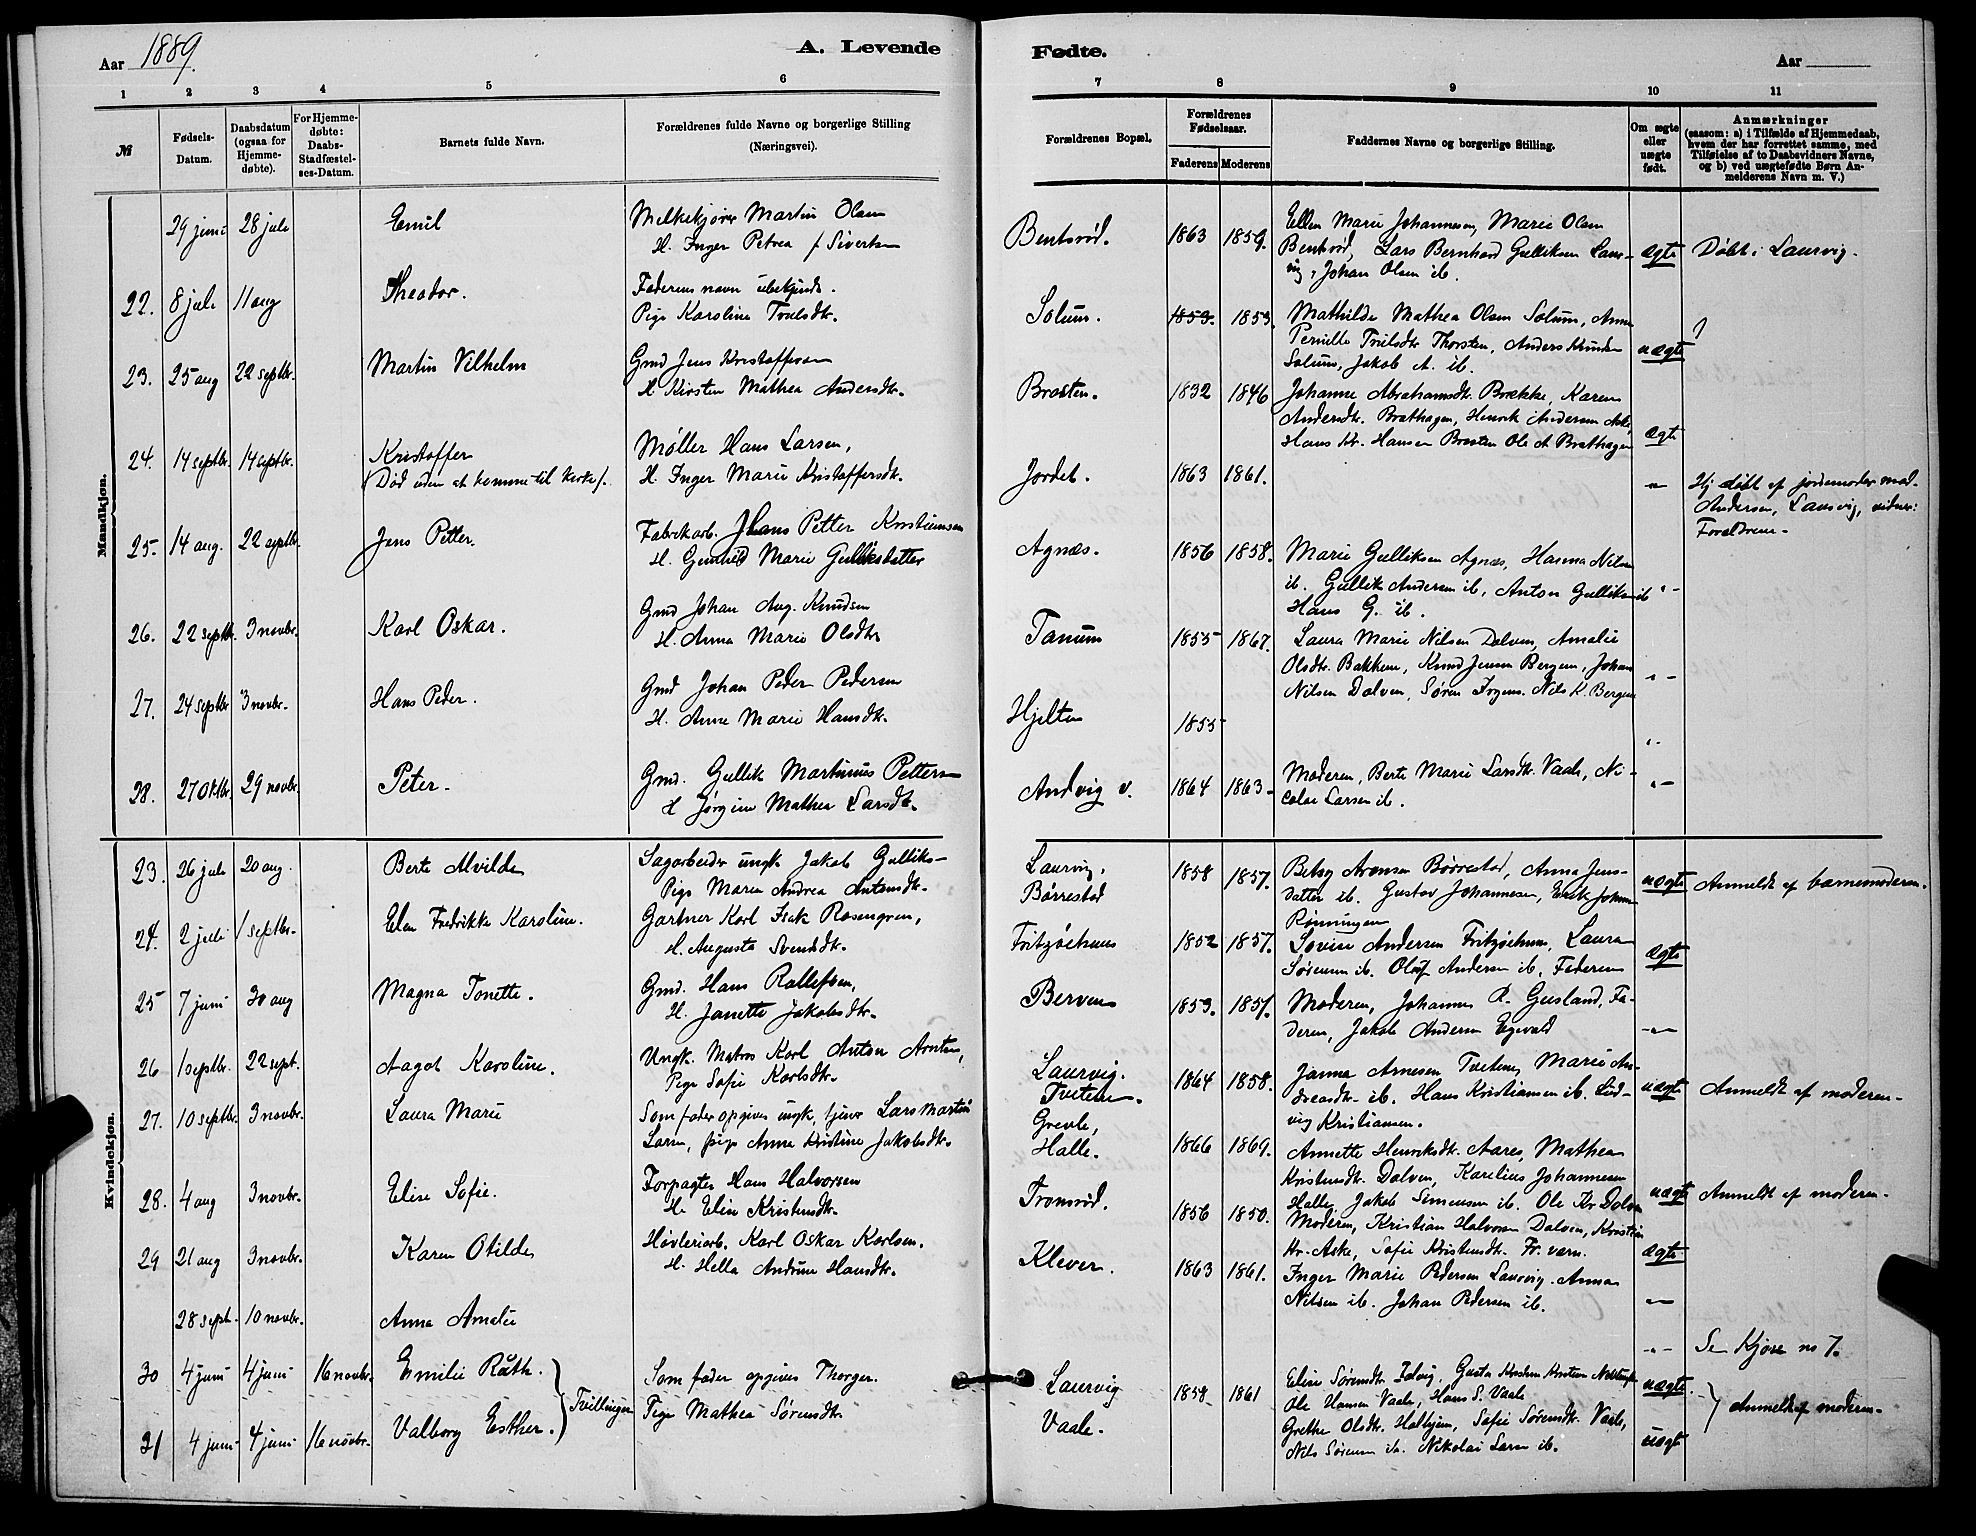 Aar 1889.
A. Levende
Fødte.
Aar
1 2 3 4 5 6 7 8 9 10 11
№
Fødsels-Datum.
Daabsdatum (ogsaa for Hjemmedøbte).
For Hjemmedøbte: Daabs-Stadfæstelses-Datum.
Barnets fulde Navn.
Forældrenes fulde Navne og borgerlige Stilling (Næringsvei).
Forældrenes Bopæl.
Forældrenes Fødselsaar.
Faderens Moderens
Faddernes Navne og borgerlige Stilling.
Om ægte eller uægte født.
Anmærkninger
(saasom: a) i Tilfælde af Hjemmedaab, hvem der har forrettet samme, med Tilføielse af to Daabsvidners Navne, og b) ved uægtefødte Børn Anmelderens Navn m. V.)
Mandkjøn.
29 juni 28 juli Emil
Melkekjører Martin Olsen
H. Inger Petrea f. Sivertsen
Bentsrød. 1863 1859.
Ellen Marie Johannesen, Marie Olsen
Bentsrød, Lars Bernhard Gulliksen Laur-
vig, Johan Olsen ib.
ægte Døbt i Laurvig.
22. 8 juli 11 aug Theodor.
Faderens navn ubekjendt.
Pige Karoline Truelsdtr.
Solum. 1853. 1853.
Mathilde Mathea Olsen Solum, Anne
Pernille Truelsdtr Thorsten, Anders Knudsen
Solum, Jakob A. ib.
uægte ?
23. 25 aug 22 septbr. Martin Vilhelm
Gmd Jens Kristoffersen
H. Kirsten Mathea Andersdtr.
Brosten. 1832 1846
Johanne Abrahamsdtr. Brække, Karen
Andersdtr. Brathagen, Henrik Andersen Aske,
Hans Kr. Hansen Brosten Ole A Brathagen
ægte
24. 14 septbr. 14 septbr. Kristoffer
(Død uden at komme til kirke).
Møller Hans Larsen,
H. Inger Marie Kristoffersdtr.
Jordet. 1863 1861.
— " —
Hj. døbt af jordemoder mad.
Andersen, Laurvig, vidner:
Forældrene.
25. 14 aug. 22 septbr. Jens Petter.
Fabrikarb. Hans Petter Kristiansen
H. Gunhild Marie Gulliksdatter
Agnæs. 1856 1858.
Marie Gulliksen Agnæs, Hanna Nilsen
ib. Gullik Andersen ib, Anton Gulliksen ib
Hans G. ib.
" -
26. 22 septbr. 3 novbr. Karl Oskar.
Gmd Johan Aug. Knudsen
H. Anna Marie Olsdtr
Tanum 1855 1867.
Laura Marie Nilsen Dolven, Amalie
Olsdtr. Bakken, Knud Jensen Bergen, Johan
Nilsen Dolven, Søren Nils K. Bergen
" -
27. 24 septbr 3 novbr. Hans Peder.
Gmd Johan Peder Pedersen
H. Anne Marie Hansdtr.
Hjelten 1855
"
28. 27 oktbr. 29 novbr. Peter.
Gmd. Gullik Martinius Pettersen
H Jørgine Mathea Larsdtr.
Andvig v. 1864 1863.
Moderen, Berte Marie Larsdtr. Vaale, Ni-
colai Larsen ib.
" -
Kvindekjøn.
23. 26 juli 20 aug. Berte Alvilde
Sagarbeider ungk Jakob Gulliks-
Pige Maren Andrea Antonsdtr.
Laurvig.
Børrestad
1858 1857.
Betsy Aronsen Børrestad, Anna Jens-
datter ib. Gustav Johannesen, Erik Johan
Rønningen
uægte Anmeldt af barnemoderen.
24. 2 juli 1 septbr. Elen Fredrikke Karoline.
Gartner Karl Isak Rosengren,
H. Augusta Svendsdtr.
Fritzøehuus 1852 1857.
Lovise Andersen Fritzøehuus, Laura
Sørensen ib. Oluf Andersen ib, Faderen
ægte
25 7 juni 30 aug Magna Tonette.
Gmd. Hans Rollefsen,
H. Janette Jakobsdtr.
Berven 1853. 1857.
Moderen, Johannes R. Gusland, Fa-
deren, Jakob Andersen Egevald
— " —
26 1 septbr. 22 sept. Aagot Karoline.
Ungk. Matros Karl Anton Arntsen,
Pige Sofie Karlsdtr.
Laurvig.
Tveten.
1864 1858.
Janna Arnesen Tveten, Marie An-
dreasdtr ib. Hans Kristiansen ib. Lud-
vig Kristiansen.
uægte Anmeldt af moderen.
27. 10 septbr. 3 novbr. Laura Marie
Som fader opgives ungk, tjener Lars Martin
Larsen, pige Anna Kristine Jakobsdtr.
Grevle,
Halle.
1866 1869.
Annette Henriksdtr. Aares, Mathea
Kristensdtr. Dolven, Karelius Johannesen
Halle, Jakob Simensen ib. Ole Kr Dolven
uægte Anmeldt af moderen.
28. 4 aug 3 novbr. Elise Sofie.
Forpagter Hans Halvorsen
H. Elise Kristensdtr.
Tromsrød. 1856 1850.
Moderen, Kristian Halvorsen Dolven, Kristen
Hr. Aske, Sofie Kristensdtr. Fr. værn.
ægte
29 21 aug 3 novbr. Karen Otilde
Høvleriarb. Karl Oskar Karlsen.
H. Hella Andrine Hansdtr.
Klever. 1863 1861.
Inger Marie Pedersen Laurvig. Anna
Nilsen ib. Johan Pedersen ib.
— " —
28 sept. 10 novbr. Anna Amalie
- " - Se Kjøse no 7.
30 4 juni 4 juni 16 novbr. Emilie Ruth.
31 4 juni 4 juni 16 novbr. Valborg Esther.
Tvillinger
Som fader opgives Thorger.
Pige Mathea Sørensdtr.
Laurvig
Vaale.
1858 1861
Elise Sørensdtr
Ole Hansen Vaale, Hans S. Vaale
Grethe Olsdtr. Halhjem, Sofie Sørensdtr. Vaale,
Nils Sørensen ib. Nikolai Larsen ib.
uægte
uægte
Anmeldt af moderen.